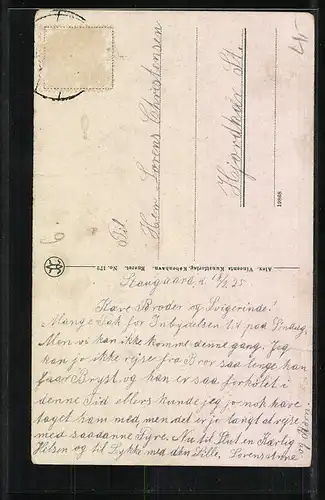 Til
Hern Lorens Christensen
Hjordkær St.
Alex. Vincents Kunstforlag, København. Eneret. No. 179
11968
6.
Skovgaard d. 18/2 25
Kære Broder og Svigerinde!
Mange Tak for Inbydelsen til paa Søndag
Men vi kan ikke komme denne gang. Jeg
kan jo ikke rejse fra Bror saa lenge han
faar Bryst og han er saa forkølet i
denne Tid ellers kunde jeg jo nok have
taget ham med, men det er jo langt at rejse
med saadanne Fyre. Nu til Slut en Kærlig
Hilsen og til Lykke med den Lille.
og Børn.